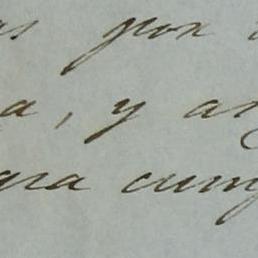 as por
a, y at
gra cum